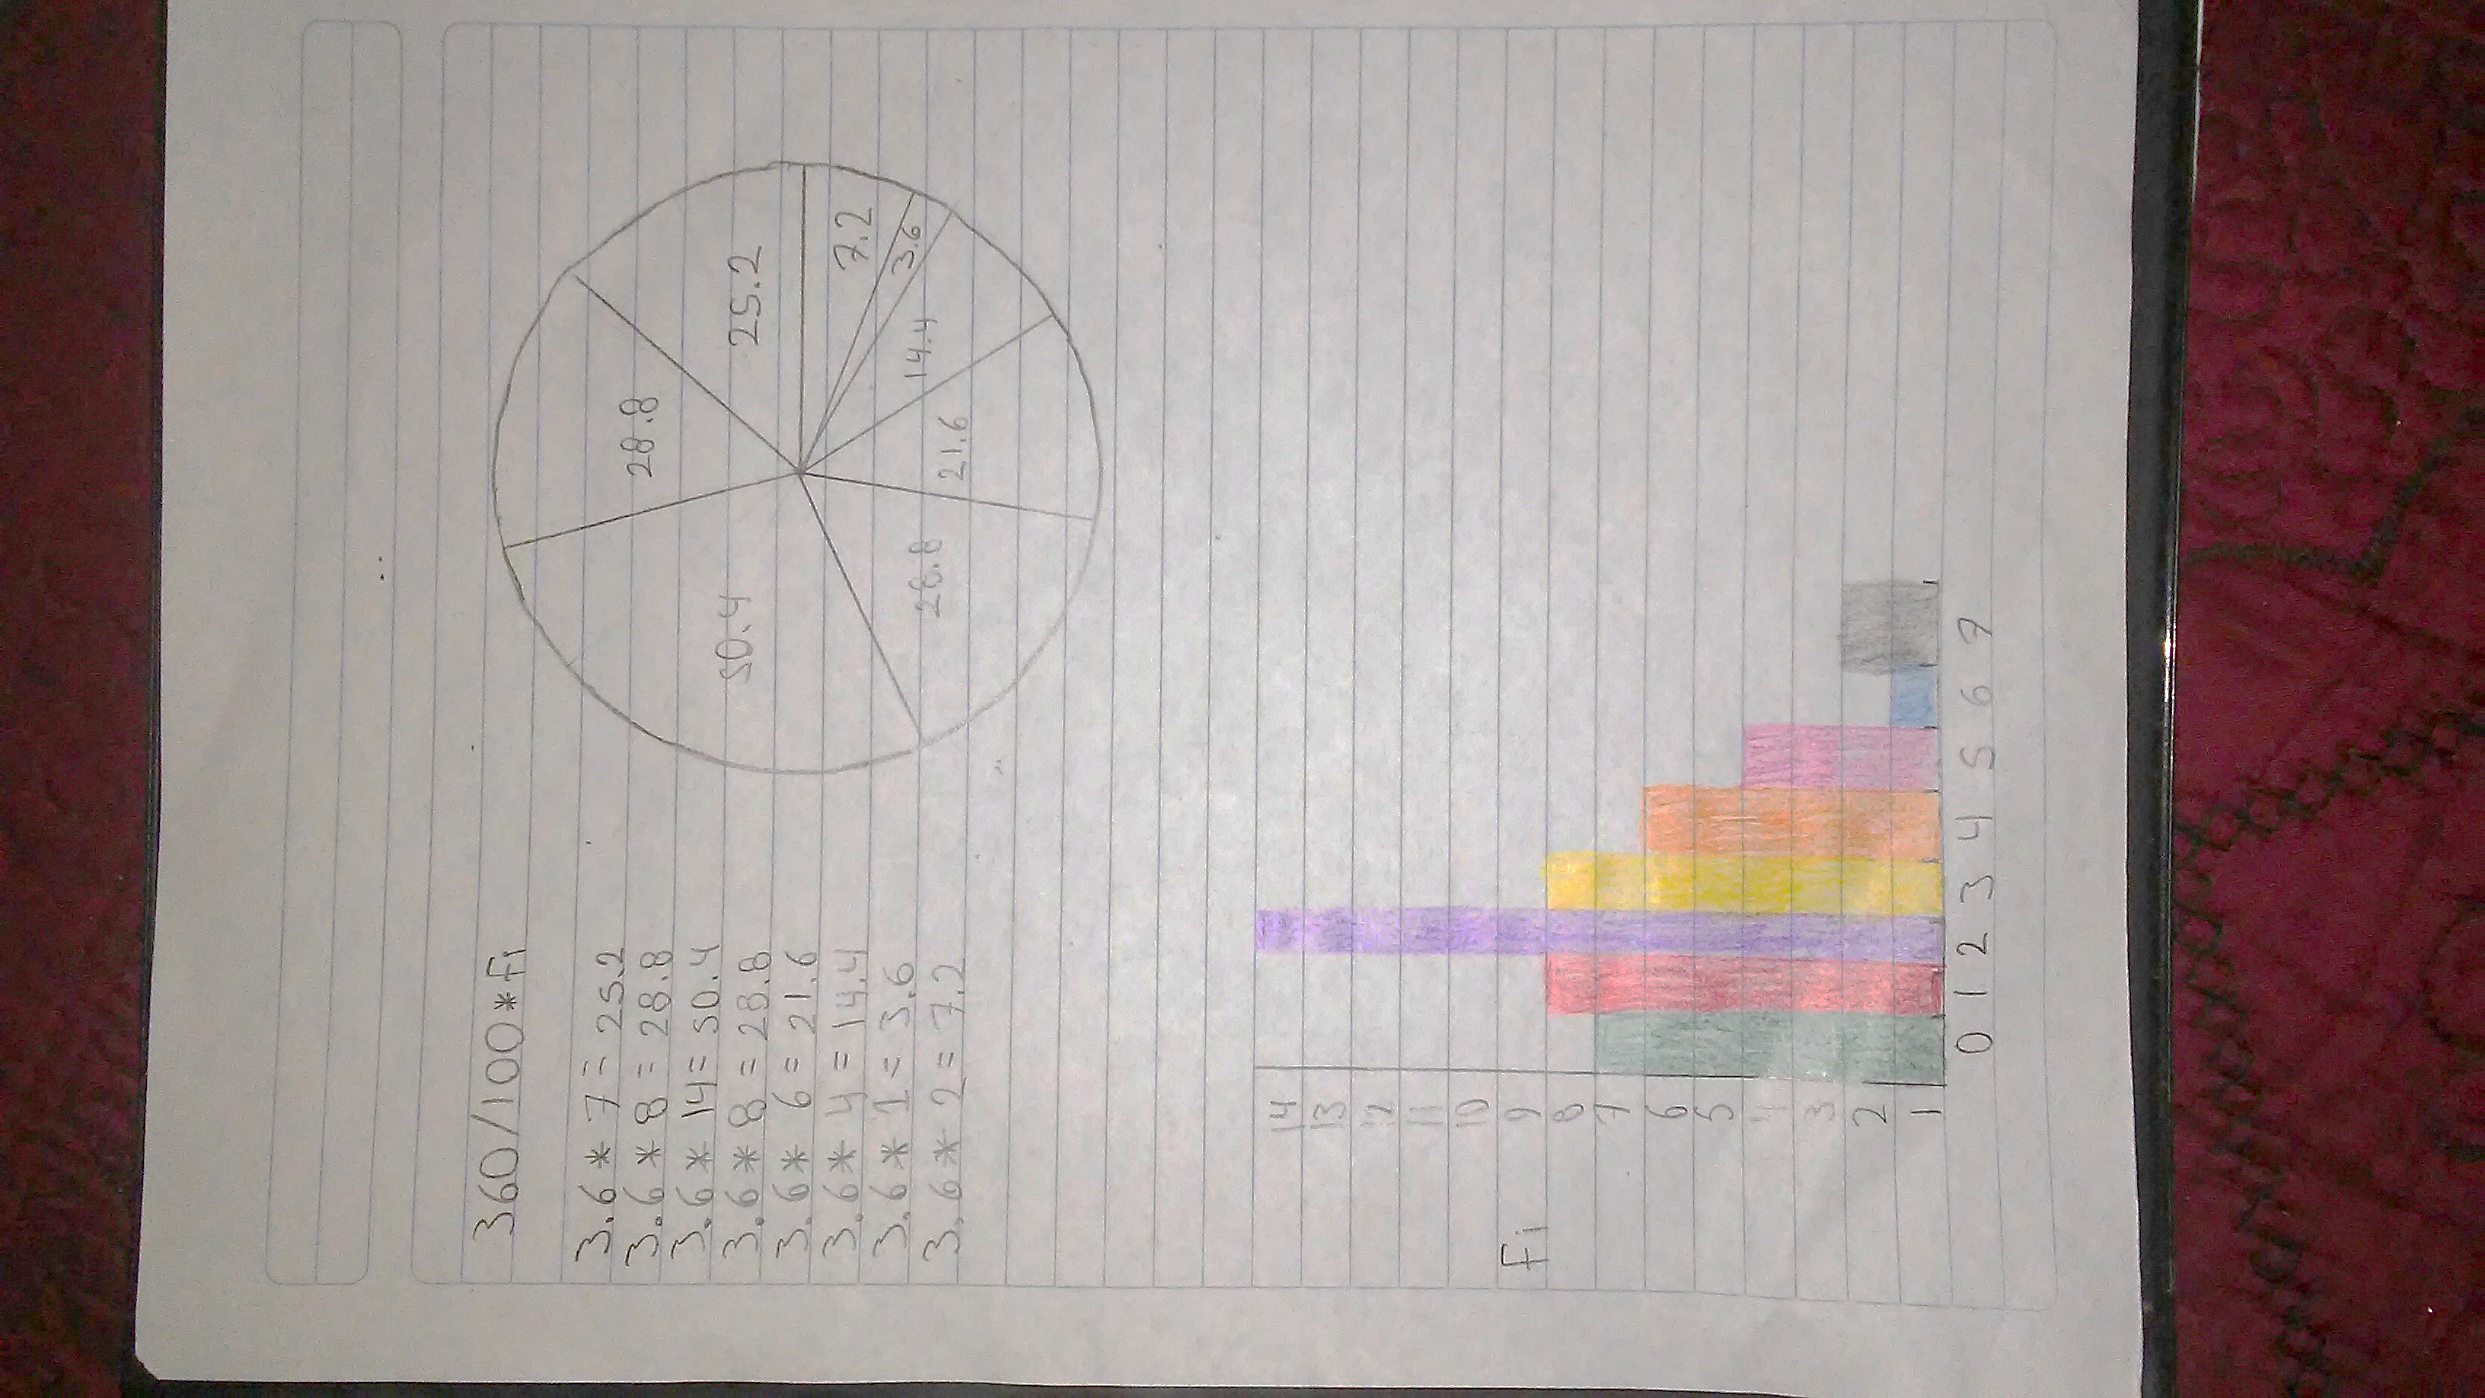 360/100*Fi
3.6 * 7 = 25.2
3.6 * 8 = 28.8
3.6 * 14 = 50.4
3.6 * 8 = 28.8
3.6 * 6 = 21.6
3.6 * 4 = 14.4
3.6 * 1 = 3.6
3.6 * 2 = 7.2
28.8
25.2
50.4
7.2
3.6
14.4
21.6
28.8
14
13
12
11
10
9
Fi
8
7
6
5
4
3
2
1
0 1 2 3 4 5 6 7